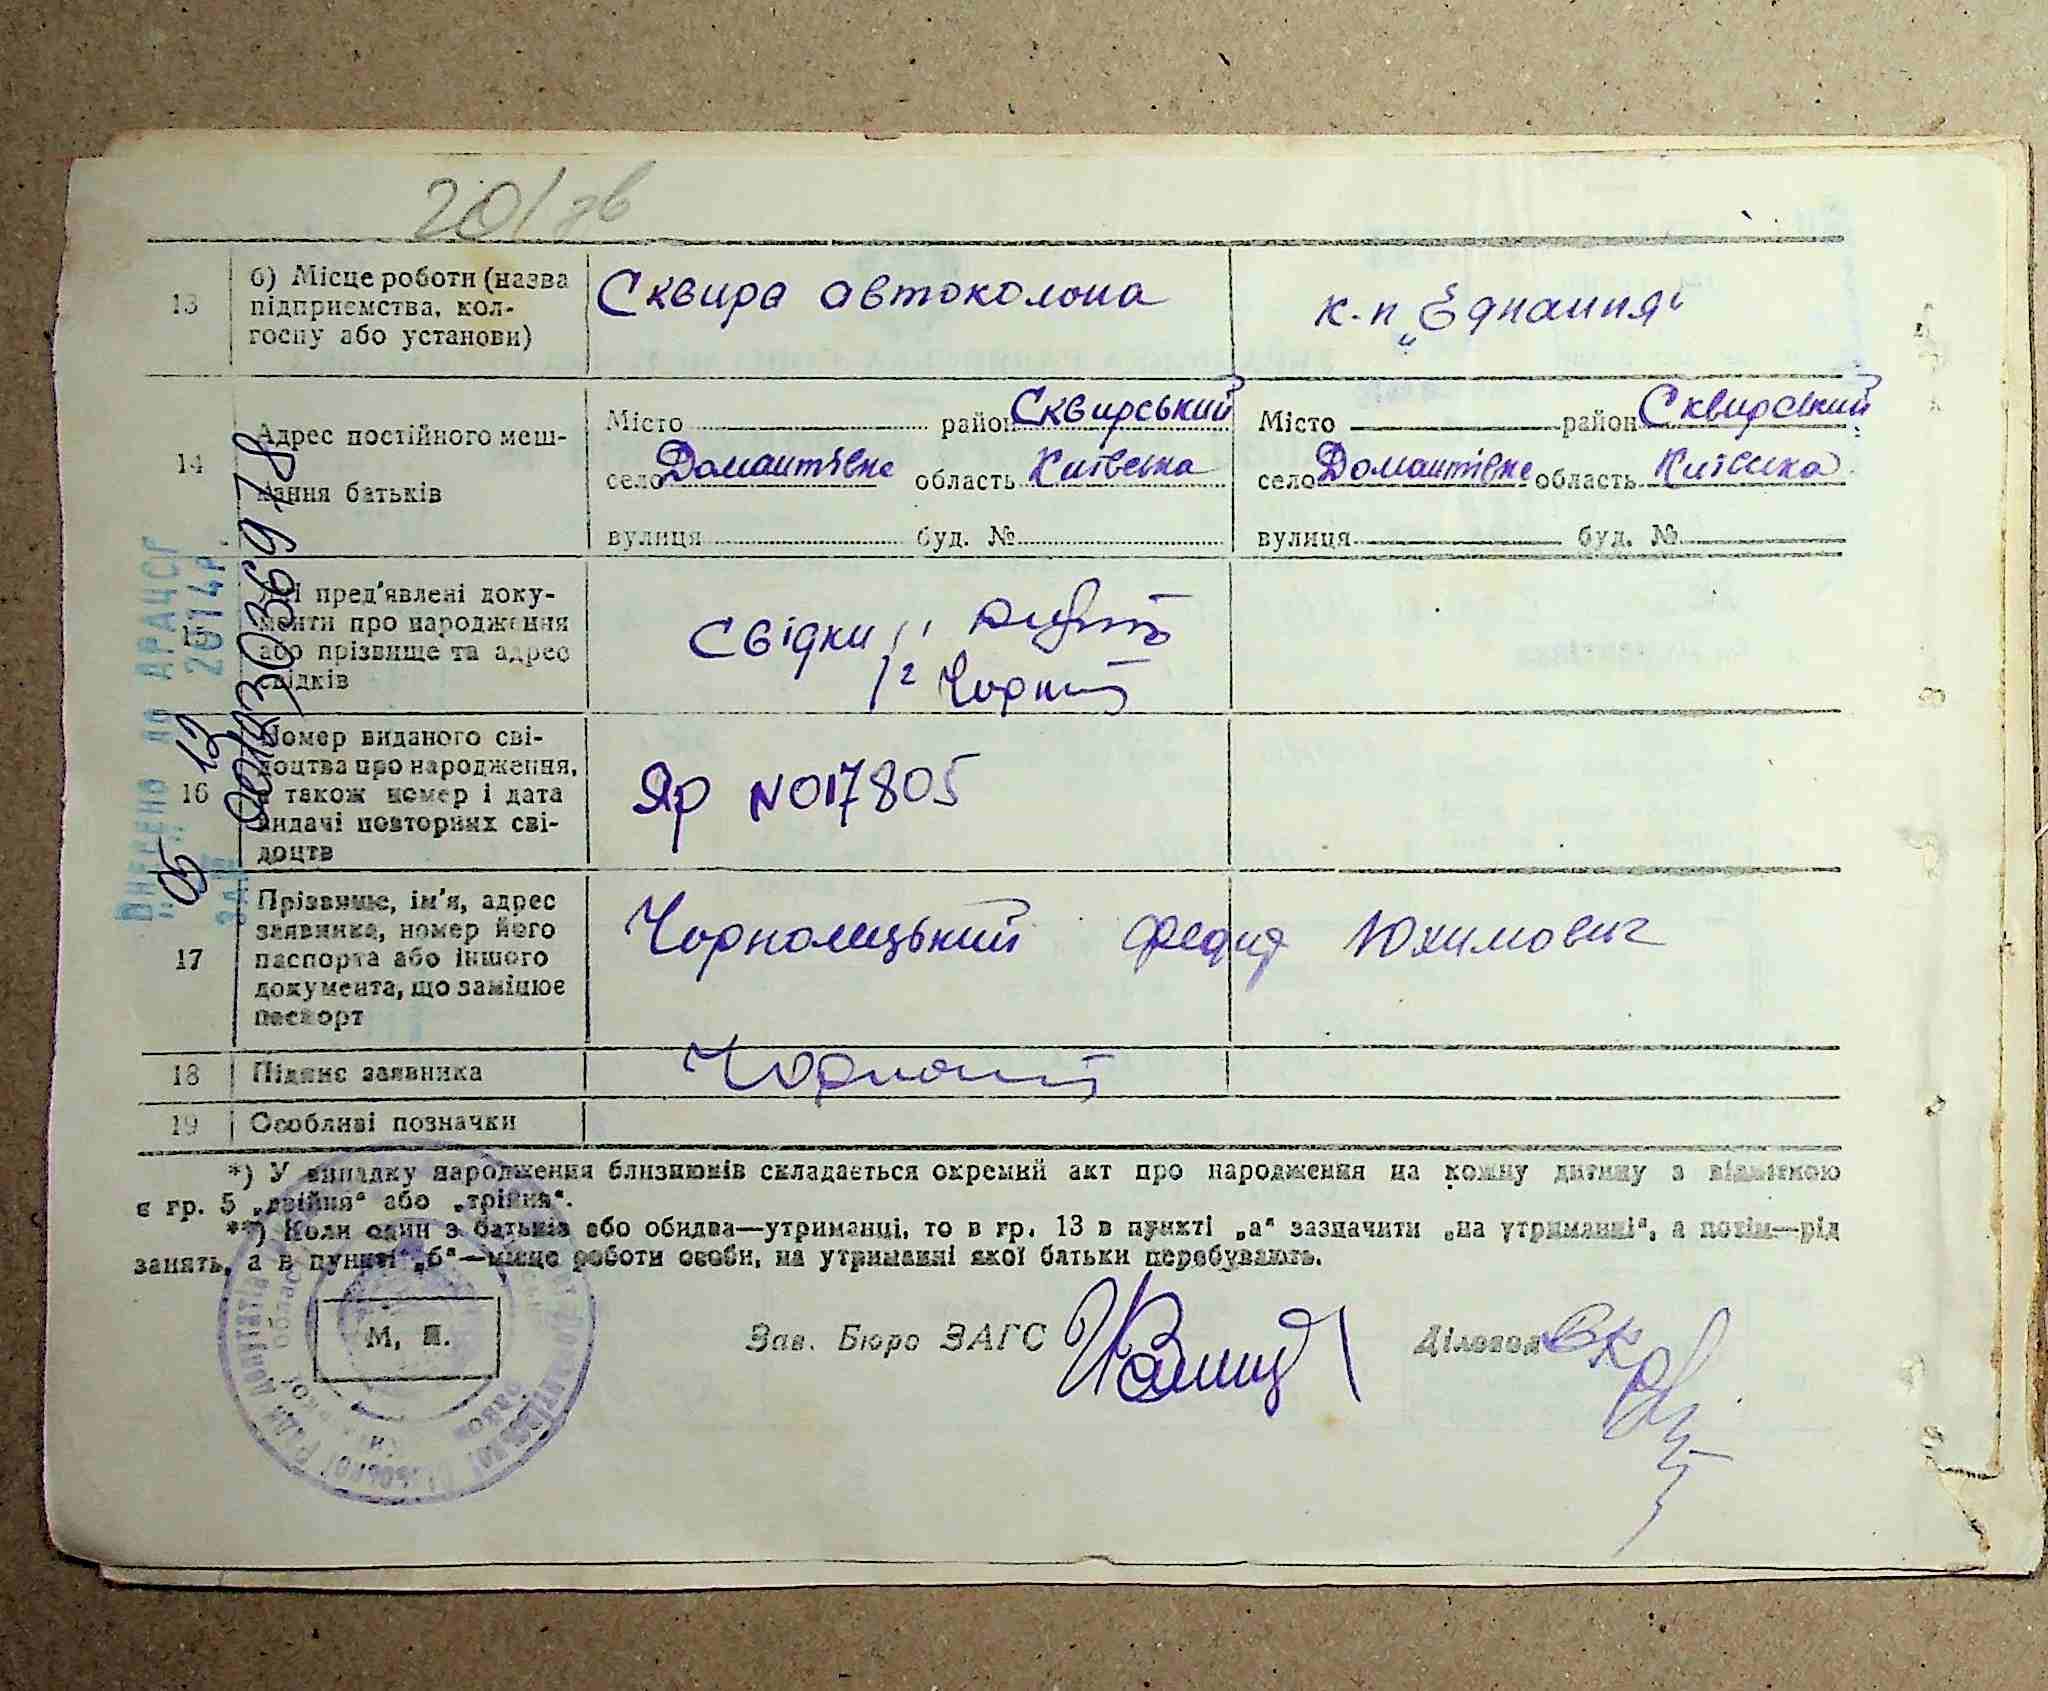 201 зв
13
б) Місце роботи (назва
підприємства, кол-
госпу або установи)
Сквира автоколона
к-п „Єднання“
14
Адрес постійного меш-
кання батьків
Місто район Сквирський
село Домантівка область Київська
вулиця буд. №
Місто район Сквирський
село Домантівка область Київська
вулиця буд. №
15
Які пред'явлені доку-
менти про народження
або прізвище та адрес
свідків
Свідки 1
2
16
Номер виданого сві-
доцтва про народження,
а також номер і дата
видачі повторних сві-
доцтв
Яр №017805
17
Прізвище, ім'я, адрес
заявника, номер його
паспорта або іншого
документа, що заміцює
паспорт
Чорнолицький Федир Юхимович
18
Підпис заявника
19
Особливі позначки
*) У випадку народження близнюків складається окремий акт про народження на кожну дитину з відміткою
в гр. 5 „двійня“ або „трійня“.
**) Коли один з батьків або обидва—утриманці, то в гр. 13 в пункті „а“ зазначити „на утриманні“, а потім—рід
занять, а в пункті „б“—місце роботи особи, на утриманні якої батьки перебувають.
М. П.
Зав. Бюро ЗАГС
Діловод
Внесено до ДРАЦСГ
05 12 2014р.